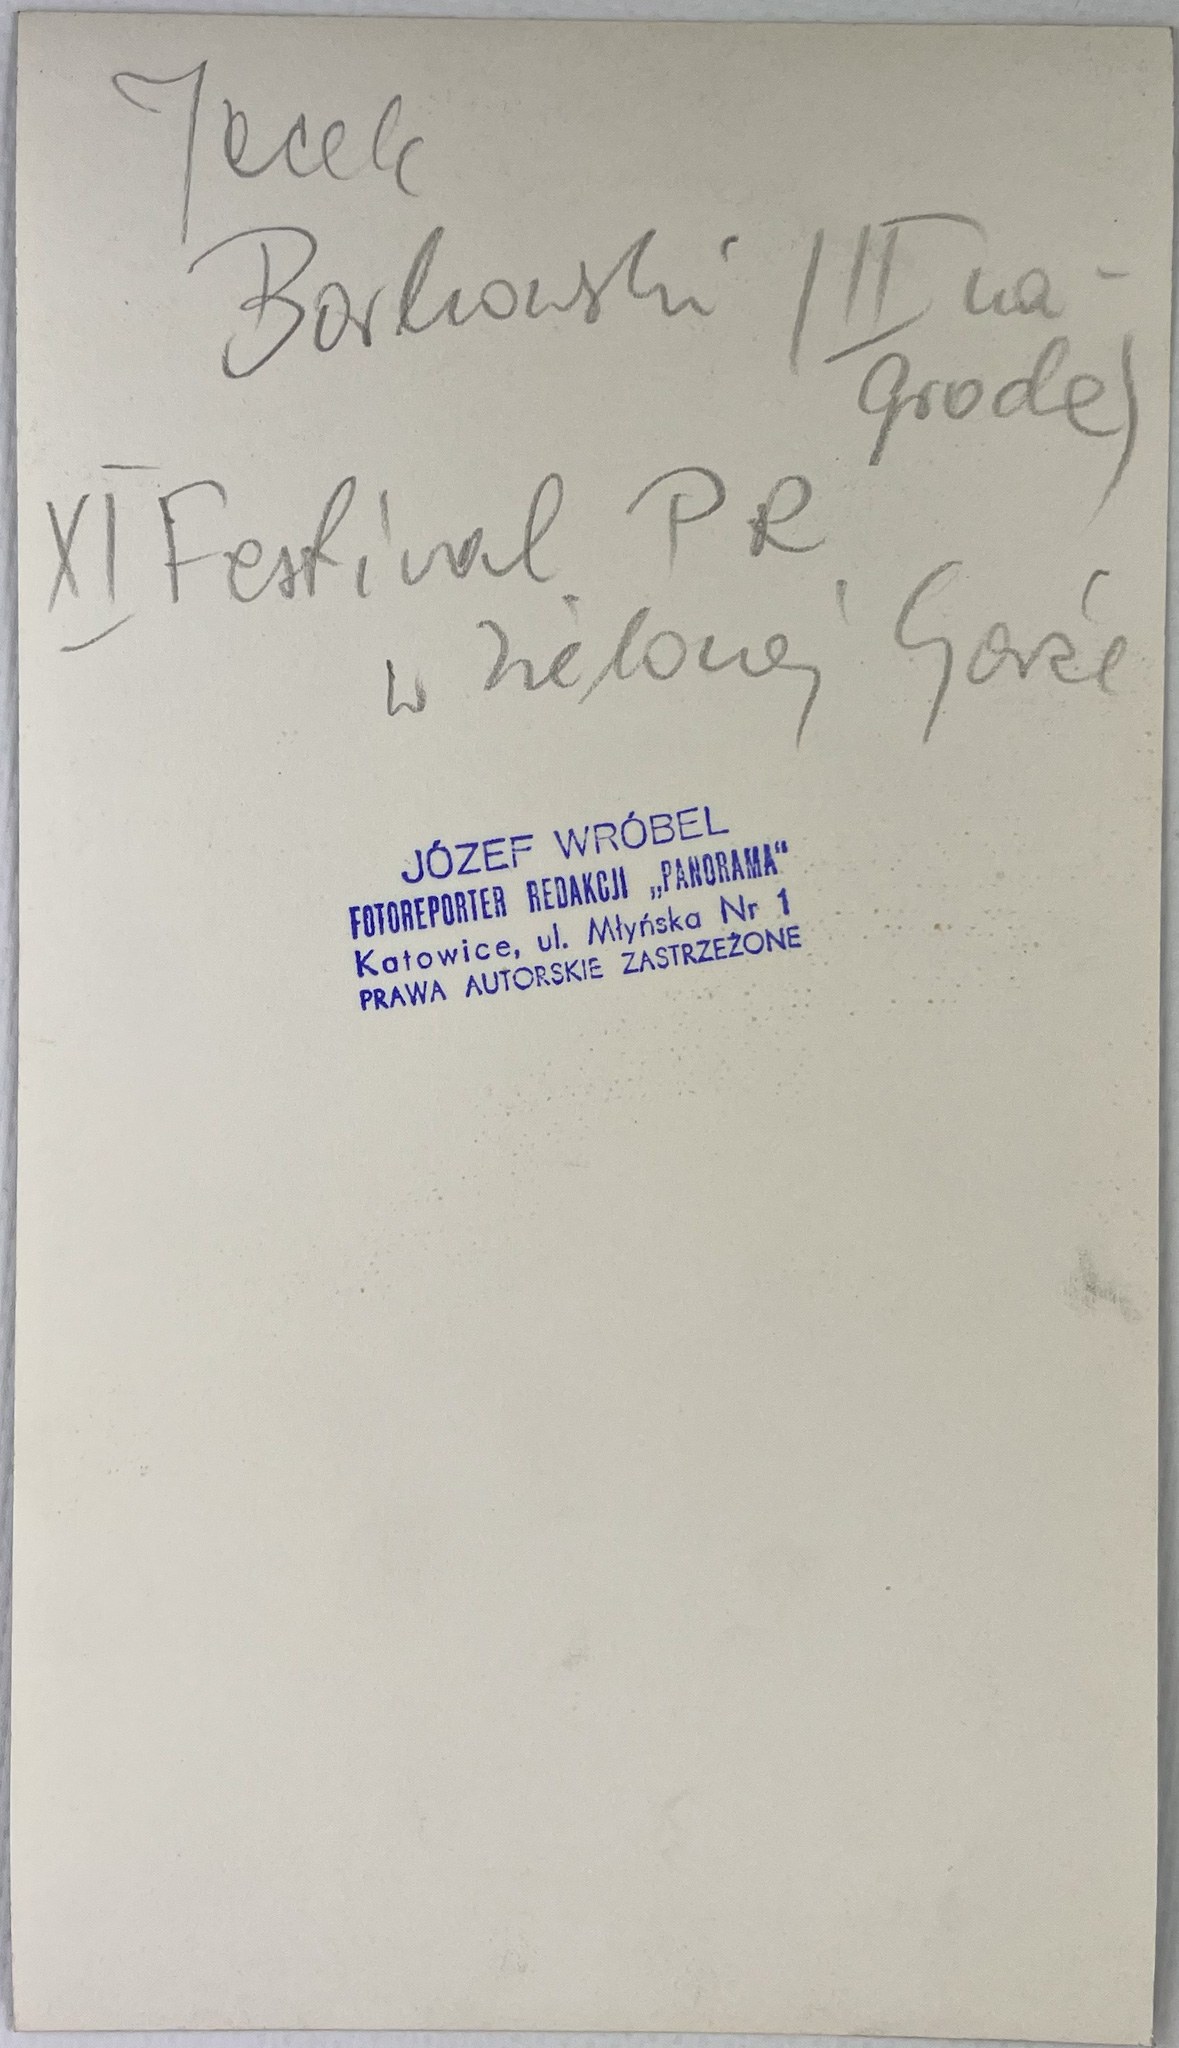 Jacek
Borkowski (II na-
groda)
XI Festiwal PR
w Zielonej Górze
JÓZEF WRÓBEL
FOTOREPORTER REDAKCJI „PANORAMA“
Katowice, ul. Młyńska Nr 1
PRAWA AUTORSKIE ZASTRZEŻONE